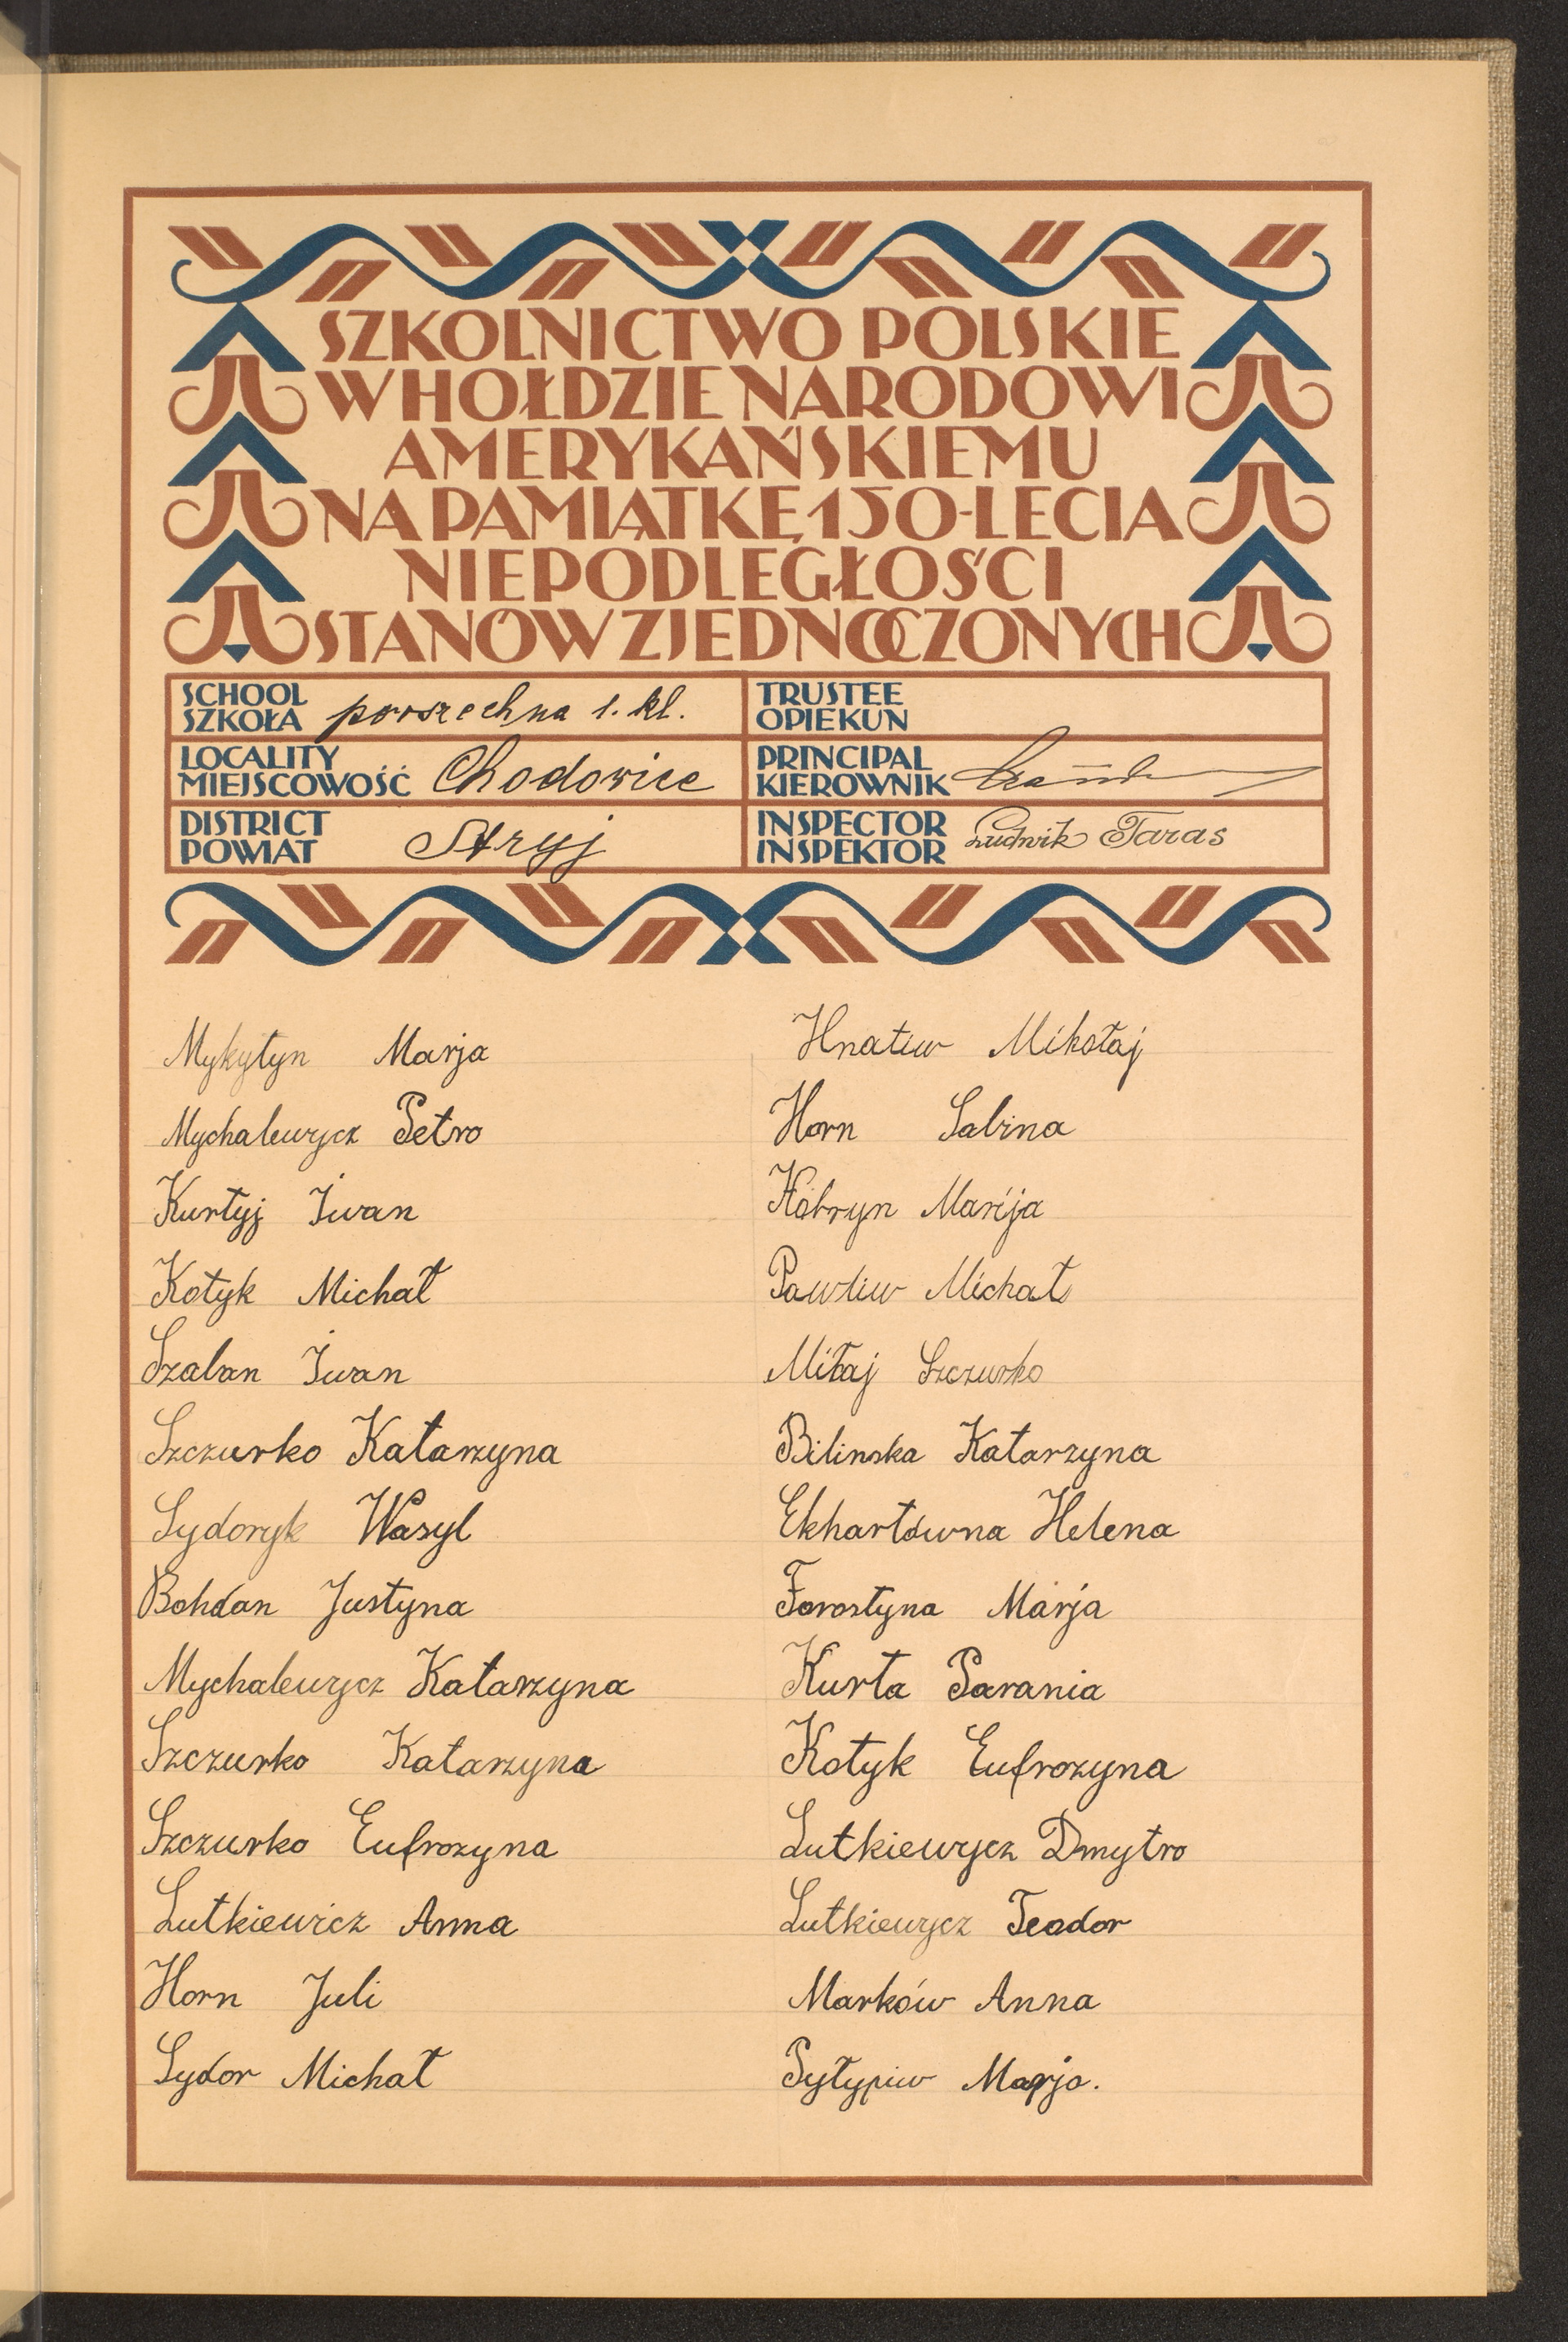 SZKOLNICTWO POLSKIE
W HOŁDZIE NARODOWI
AMERYKAŃSKIEMU
NA PAMIĄTKĘ 150-LECIA
NIEPODLEGŁOŚCI
STANÓW ZJEDNOCZONYCH
SCHOOL
SZKOŁA powszechna 1. kl.
TRUSTEE
OPIEKUN
LOCALITY
MIEJSCOWOŚĆ Chodowice
PRINCIPAL
KIEROWNIK
DISTRICT
POWIAT Stryj
INSPECTOR
INSPEKTOR Ludwik Taras
Mykytyn Marja
Mychalewycz Petro
Kurtyj Iwan
Kotyk Michał
Szaban Iwan
Szczurko Katarzyna
Sydoryk Wasyl
Bohdan Justyna
Mychalewycz Katarzyna
Szczurko Katarzyna
Szczurko Eufrozyna
Lutkiewicz Anna
Horn Juli
Sydor Michał
Hnatiw Mikołaj
Horn Sabina
Kobryn Marija
Pawliw Michał
Miłaj Szczurko
Bilinska Katarzyna
Ekhartówna Helena
Forostyna Marja
Kurta Parania
Kotyk Eufrozyna
Lutkiewycz Dmytro
Lutkiewycz Teodor
Marków Anna
Pyłypiw Marja.